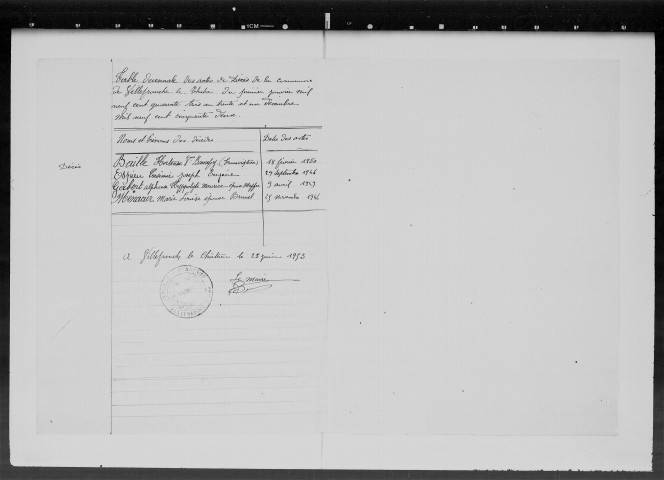 1CM
Table decennale des actes de Décès de la commune
de Villefranche le Château du premier janvier mil
neuf cent quarante trois au trente et un Décembre
mil neuf cent cinquante Deux
Noms et Prénoms des décédés Dates des actes
Décès
Baille Hortense Vve (transcription) 18 février 1950
Espieu Casimir Joseph 27 septembre 1946
alphonse Hyppolyte Maurice 9 avril 1947
Marie Louise épouse Brunel 25 novembre 1946
A Villefranche le Château le 28 juin 1953
Le Maire